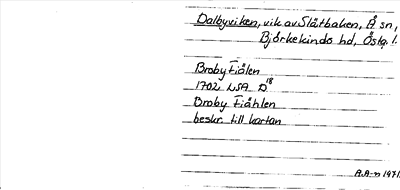 Dalbyviken, vik av Slätbaken, Å sn,
Björkekinds hd, Östg. l.
Broby Fiälen
1702 LSA D 18
Broby Fiählen
beskr. till kartan
A.A-n 1971